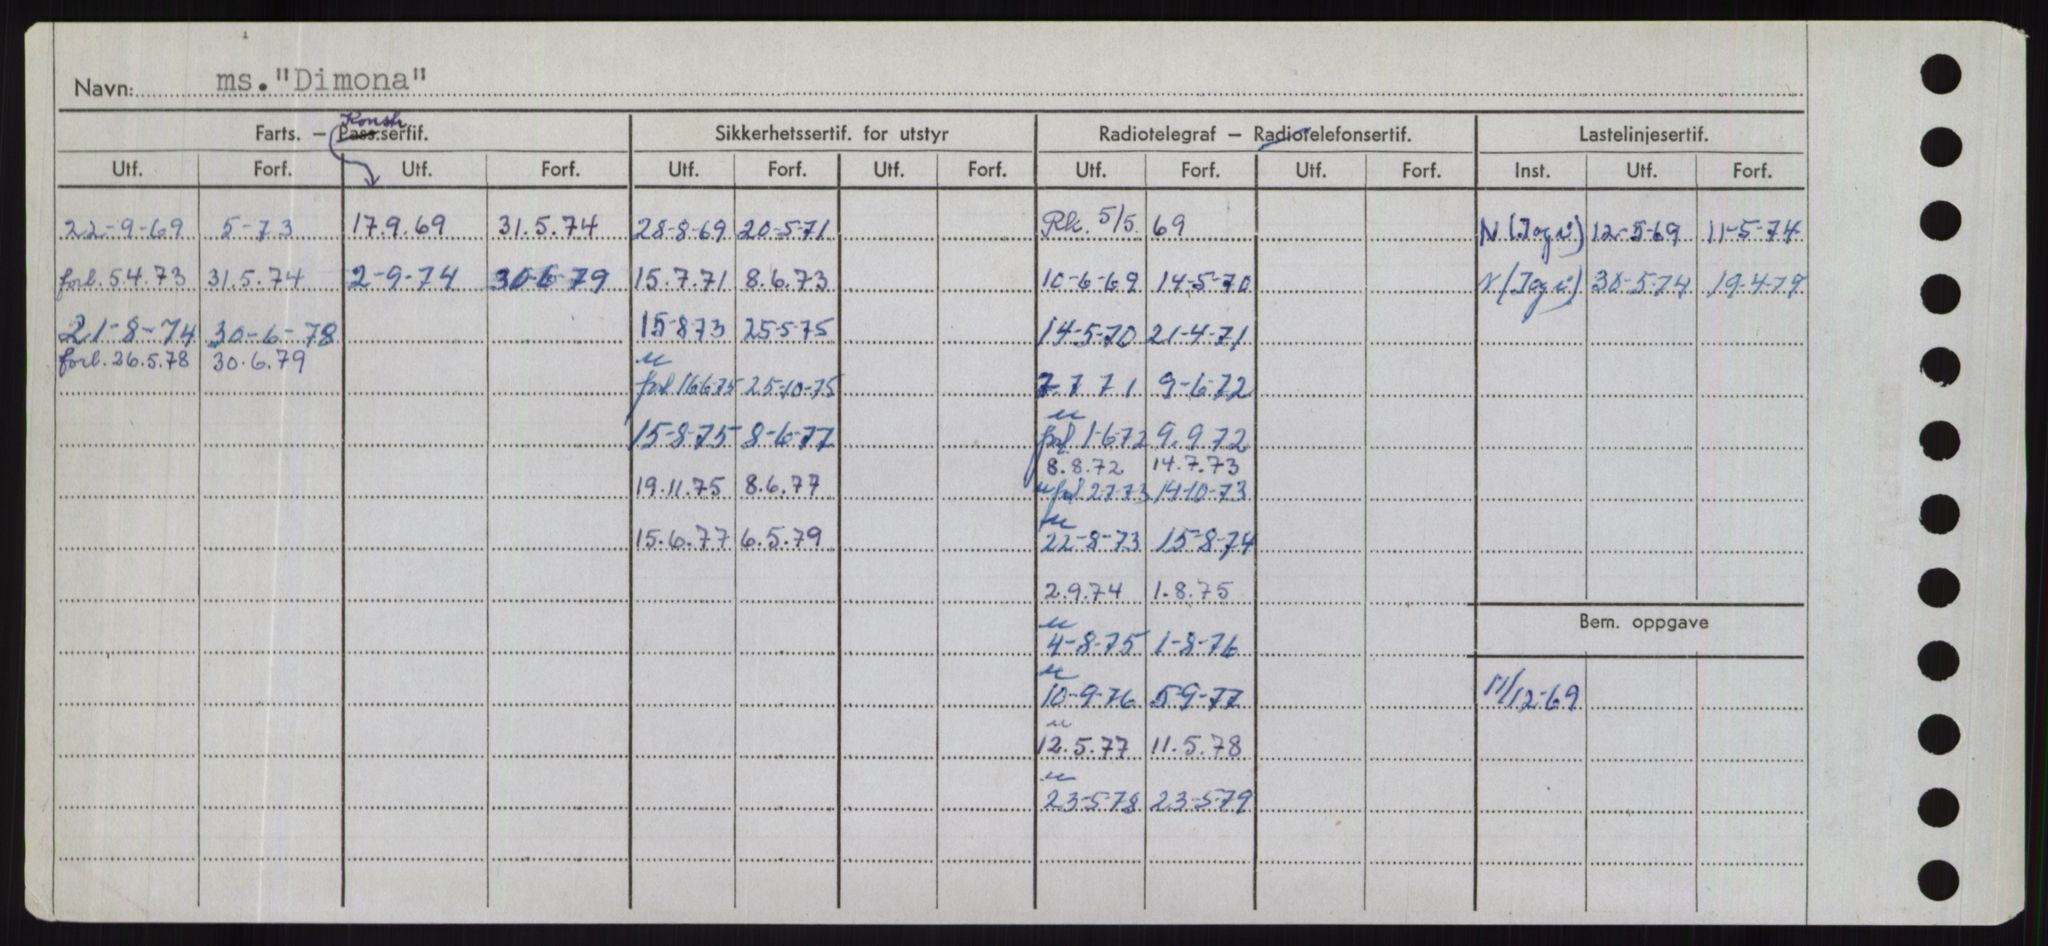 Navn: ms. "Dimona"
Farts. – Pass.sertif. Konstr. Sikkerhetssertif. for utstyr Radiotelegraf – Radiotelefonsertif. Lastelinjesertif.
Utf. Forf. Utf. Forf. Utf. Forf. Utf. Forf. Utf. Forf. Utf. Forf. Inst. Utf. Forf.
22-9-69 5-73 17.9.69 31.5.74 28-8-69 20-5-71 Rk. 5/5. 69 N (I og i) 12-5-69 11-5-74
forl. 5.4.73 31.5.74 2-9-74 30-6-79 15.7.71 8.6.73 10-6-69 14-5-70 N (I og i) 30-5-74 19-4-79
21-8-74 30-6-78 15-8-73 25-5-75 14-5-70 21-4-71
forl. 26.5.78 30.6.79 u
forl 16-6-75 25-10-75 7 7 71 9-6-72
u
15-8-75 8-6-77 forl 1-6-72 9.9.72
8.8.72 14.7.73
19.11.75 8.6.77 u forl 2-7-73 14-10-73
u
15.6.77 6.5.79 22-8-73 15-8-74
2.9.74 1.8.75
Bem. oppgave
u
4-8-75 1-8-76
u
10-9-76 5-9-77 11/12-69
u
12.5.77 11.5.78
u
23-5-78 23-5-79